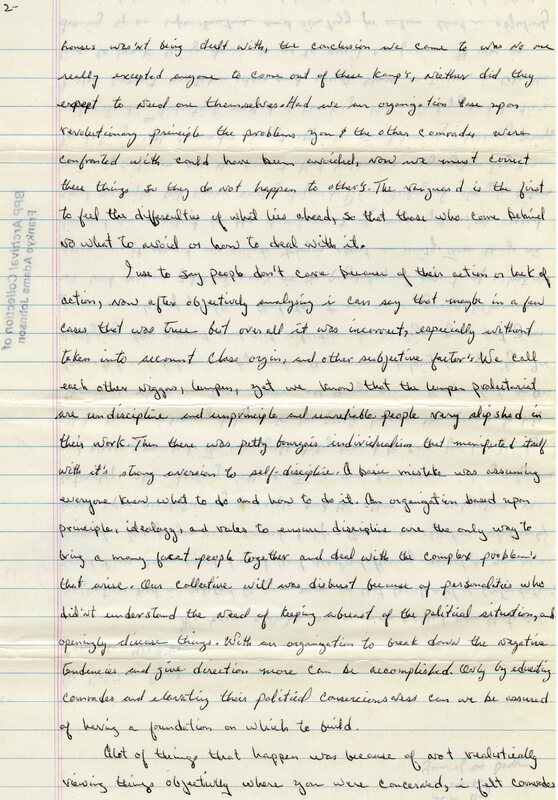 2-
houses was'nt being dealt with, the conclusion we came to was no one
really excepted anyone to come out of these Kamp's, niether did they
expept to need one themselves. Had we an organization base upon
revolutionary principle the problems you & the other comrades were
confronted with could have been avoided, now we must correct
these things so they do not happen to other's. The vanguard is the first
to feel the difficulties of what lies ahead, so that those who come behind
no what to avoid or how to deal with it.
I use to say people don't care because of their action or lack of
action, now after objectively analysing i can say that maybe in a few
cases that was true but over all it was incorrect, especially without
taken into account class orgin, and other subjective factor's. We call
each other lumpen, yet we know that the lumpen proletariat
are undiscipline and unprinciple and unreliable people very slipshed in
their work. Then there was petty bourgois individualism that manifested itself
with it's strong aversion to self-discipline. A basic mistake was assuming
everyone knew what to do and how to do it. An organization based upon
principle, ideology, and rules to ensure discipline are the only way to
bring a many facet people together and deal with the complex problem's
that arise. Our collective will was disburst because of personalities who
did'nt understand the need of keeping abreast of the political situation, and
openingly discuss things. With an organization to break down the negative
tendencies and give direction more can be accomplished. Only by educating
comrades and elevating their political consciousness can we be assured
of having a foundation on which to build.
Alot of things that happen was because of not realistically
viewing things objectively where you were concerned, i felt comrades
BPP Archival Collection of
Frankye Adams Johnson